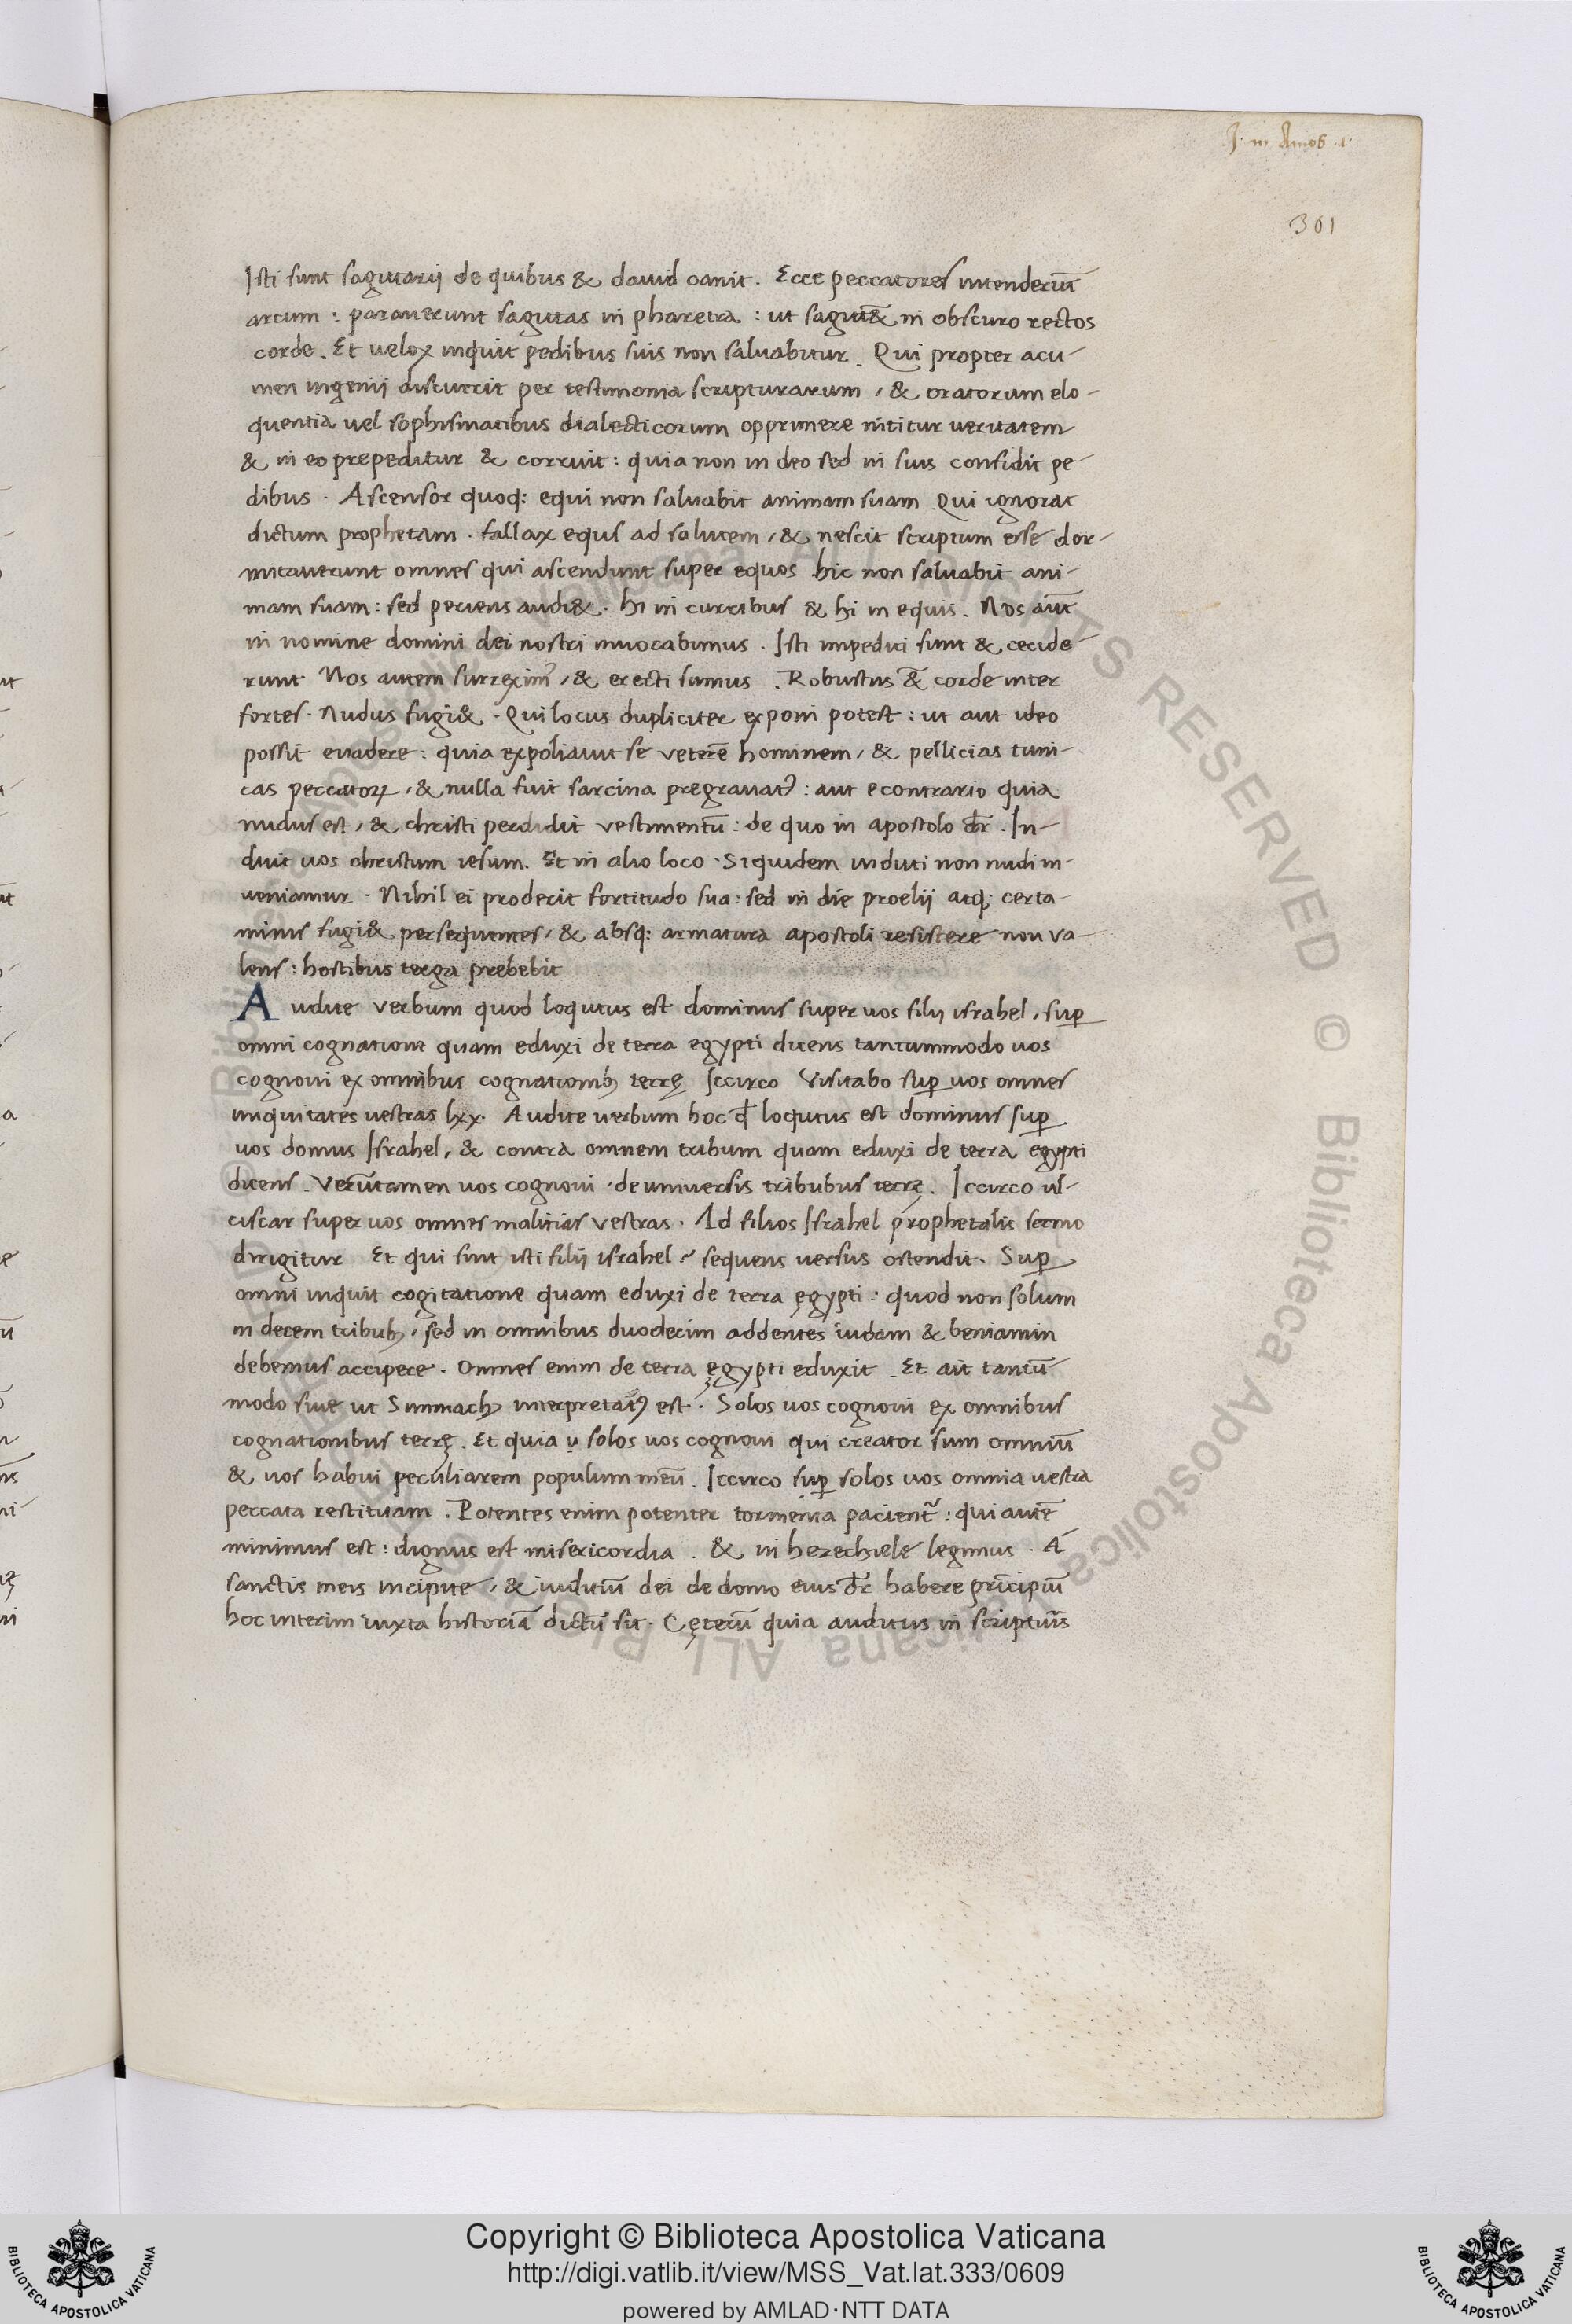 J. in Amos .i.
301
Isti sunt sagittarij de quibus & dauid canit. Ecce peccatores intenderūt
arcum : parauerunt sagittas in pharetra : ut sagitt& in obscuro rectos
corde. Et uelox inquit pedibus suis non saluabitur. Qui propter acu-
men ingenij discurrit per testimonia scripturarum, & oratorum elo-
quentia uel sophismatibus dialecticorum opprimere nititur ueritatem
& in eo prepeditur & corruit: quia non in deo sed in suis confidit pe-
dibus. Ascensor quoq: equi non saluabit animam suam. Qui ignorat
dictum prophetam. fallax equs ad salutem, & nescit scriptum esse dor-
mitauerunt omnes qui ascendunt super equos hic non saluabit ani-
mam suam: sed periens audi&. hi in curribus & hi in equis. Nos aūt
in nomine domini dei nostri inuocabimus. Isti impediti sunt & cecide-
runt Nos autem surreximꝰ, & erecti sumus. Robustus & corde inter
fortes. Nudus fugi&. Qui locus dupliciter exponi potest: ut aut ideo
possit euadere: quia expoliauit se veterē hominem, & pellicias tuni-
cas peccatoꝝ, & nulla fuit sarcina pregrauatꝰ: aut econtrario quia
nudus est, & christi perdidit vestimentū: de quo in apostolo dr̄. In-
duit uos christum iesum. Et in alio loco. Siquidem induti non nudi in-
ueniamur. Nihil ei proderit fortitudo sua: sed in die proelij atq; certa-
minis fugi& persequentes, & absq: armatura apostoli resistere non va-
lens: hostibus terga prebebit
Audite verbum quod loqutus est dominus super uos filij israhel, suꝑ
omni cognatione quam eduxi de terra egypti dicens tantummodo uos
cognoui ex omnibus cognationibꝫ terrę Iccirco Visitabo suꝑ uos omnes
iniquitates uestras lxx. Audite uerbum hoc qđ loqutus est dominus suꝑ
uos domus Israhel, & contra omnem tribum quam eduxi de terra egypti
dicens. Verūtamen uos cognoui. de uniuersis tribubus terrę. Iccirco ul-
ciscar super uos omnes malitias vestras. Ad filios Israhel prophetalis sermo
dirigitur Et qui sint isti filij israhel? sequens uersus ostendit. Suꝑ
omni inquit cogitatione quam eduxi de terra ęgypti: quod non solum
in decem tribubꝫ, sed in omnibus duodecim addentes iudam & beniamin
debemus accipere. Omnes enim de terra ęgypti eduxit. Et ait tantū
modo siue ut Simmachꝰ interpretatꝰ est. Solos uos cognoui ex omnibus
cognationibus terrę. Et quia u solos uos cognoui qui creator sum omniū
& uos habui peculiarem populum meū. Iccirco suꝑ solos uos omnia uestra
peccata restituam. Potentes enim potenter tormenta pacient̃: qui autē
minimus est: dignus est misericordia. & in hezechiele legimus. A
sanctis meis incipite, & iuditiū dei de domo eius dr̄ habere prīcipiū
hoc interim iuxta historiā dictū sit. Cęterū quia auditus in scripturis
Copyright © Biblioteca Apostolica Vaticana
http://digi.vatlib.it/view/MSS_Vat.lat.333/0609
powered by AMLAD·NTT DATA